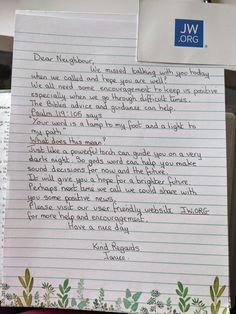 JW
.ORG
Dear Neighbour,
We missed talking with you today
when we called and hope you are well!
We all need some encouragement to keep us positive
especially when we go through difficult times.
The Bibles advice and guidance can help.
Psalm 119:105 says
"Your word is a lamp to my foot and a light to
my path."
What does this mean?
Just like a powerful torch can guide you on a very
dark night. So gods word can help you make
sound decisions for now and the future.
It will give you a hope for a brighter future.
Perhaps next time we call we could share with
you some positive news.
Please visit our user friendly website JW.ORG
for more help and encouragement.
Have a nice day
Kind Regards